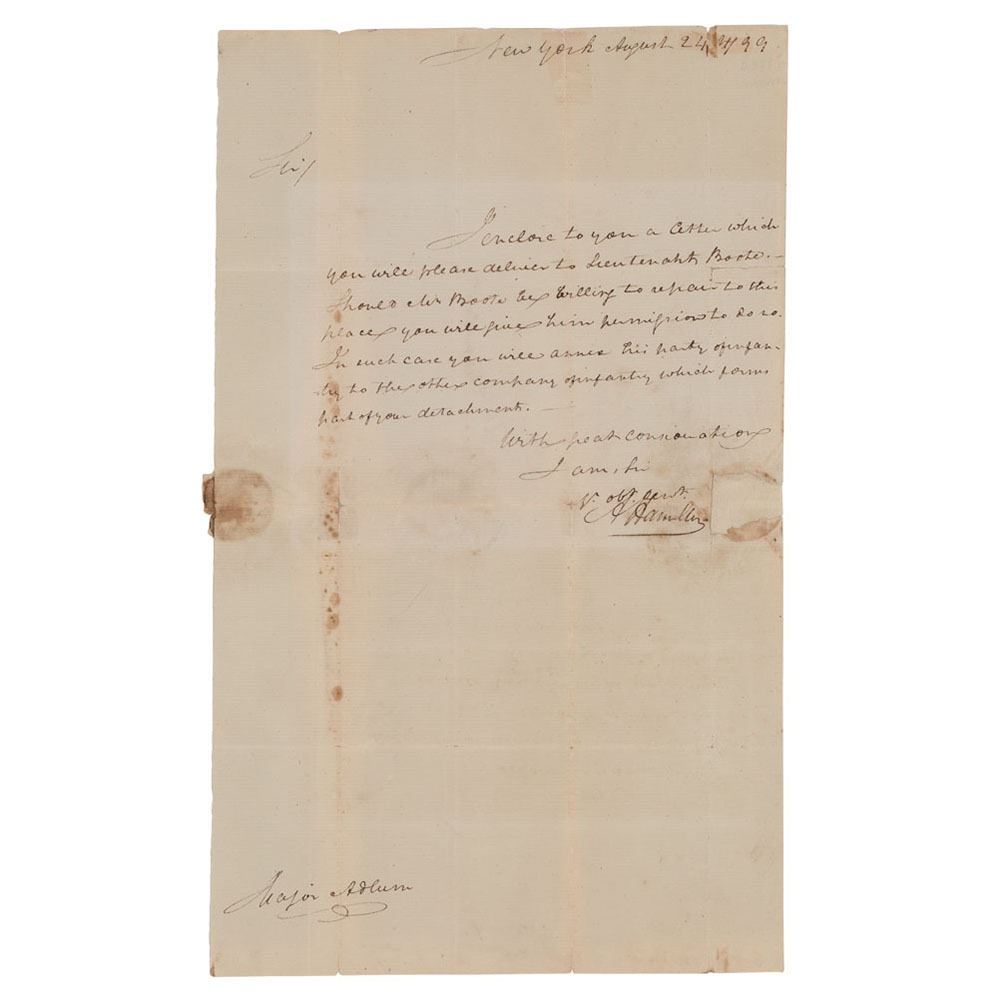 New York August 24, 1799
Sir/
I enclose to you a letter which
you will please deliver to Lieutenant Boote. —
Should Mr Boote be willing to repair to this
place you will give him permission to do so.
In such case you will annex his party of infan-
try to the other company of infantry which forms
part of your detachment. —
With great consideration
I am, Sir
Yr. obt. servt.
A Hamilton
Major Adlum